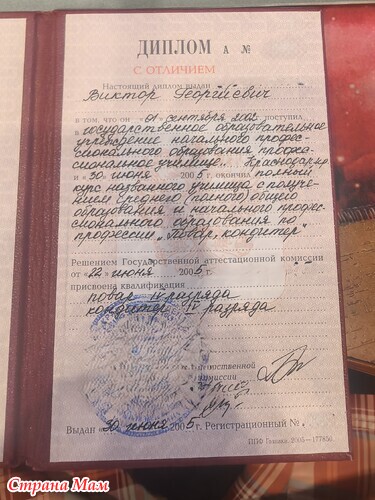 ДИПЛОМ А №
С ОТЛИЧИЕМ
Настоящий диплом выдан
Виктор Георгиевич
в том, что он "01" сентября 2002 поступил
в государственное образовательное
учреждение начального профес-
сионального образования професси-
ональное училище... Краснодар
и "30" июня 2005 г. окончил полный
курс названного училища с получе-
нием среднего (полного) общего
образования и начального профес-
сионального образования по
профессии "Повар, кондитер"
Решением Государственной аттестационной комиссии
от "22" июня 2005 г.
присвоена квалификация
повар IV разряда
кондитер IV разряда
комиссии
Выдан "30" июня 2005 г. Регистрационный №
ППФ Гознака. 2005
Страна Мам